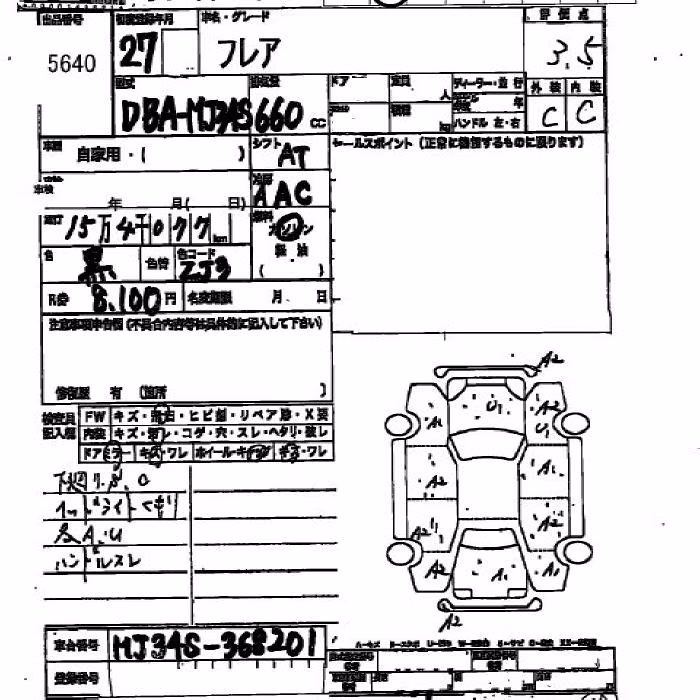 出品番号 初度登録年月 車名・グレード 評価点
5640 27 フレア 3.5
型式 排気量 ドア 定員 ディーラー・並行 外装 内装
DBA-MJ34S 660 cc 人 年 C C
kg ハンドル 左・右
車歴 自家用・( ) シフト AT セールスポイント (正常に機能するものに限ります)
車検 年 月( 日) 冷房 AAC
走行 15万4千077km 燃料 ガソリン
軽油
色 黒 色替 色コード ZJ3 ( )
R券 8.100円 名変期限 月 日
注意事項申告欄 (不具合内容等は具体的に記入して下さい)
修復歴 有 (箇所 )
検査員 FW キズ・飛石・ヒビ割・リペア跡・X要
記入欄 内装 キズ・汚レ・コゲ・穴・スレ・ヘタリ・破レ
ドアミラー キズ・ワレ ホイールキャップ キズ・ワレ
下廻り.S.C
ヘッドライトくもり
各A.U
ハンドルスレ
A2
U1
A1
A2
U1
A2
A1
A2
A2
A2
A1
A1
A2
車台番号 MJ34S-368201
登録番号